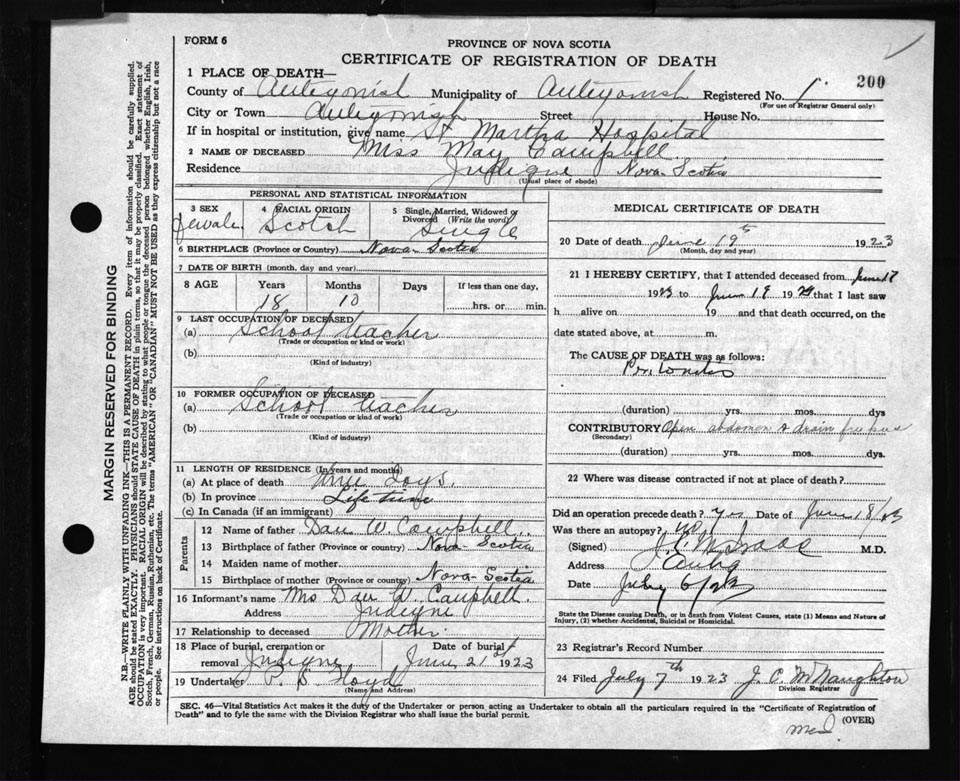 FORM 6
PROVINCE OF NOVA SCOTIA
CERTIFICATE OF REGISTRATION OF DEATH
200
1 PLACE OF DEATH—
County of Antigonish Municipality of Antigonish Registered No. 1
(For use of Registrar General only)
City or Town Antigonish Street House No.
If in hospital or institution, give name St Martha Hospital
2 NAME OF DECEASED Miss May Campbell
Residence Judique Nova Scotia
(Usual place of abode)
PERSONAL AND STATISTICAL INFORMATION
3 SEX Female
4 RACIAL ORIGIN Scotch
5 Single, Married, Widowed or Divorced (Write the word) Single
6 BIRTHPLACE (Province or Country) Nova Scotia
7 DATE OF BIRTH (month, day and year)
8 AGE Years 18 Months 10 Days If less than one day, hrs. or min.
9 LAST OCCUPATION OF DECEASED
(a) School teacher
(Trade or occupation or kind of work)
(b)
(Kind of industry)
10 FORMER OCCUPATION OF DECEASED
(a) School teacher
(Trade or occupation or kind of work)
(b)
(Kind of industry)
11 LENGTH OF RESIDENCE (In years and months)
(a) At place of death days.
(b) In province Life time
(c) In Canada (if an immigrant)
Parents
12 Name of father Dan W. Campbell
13 Birthplace of father (Province or country) Nova Scotia
14 Maiden name of mother
15 Birthplace of mother (Province or country) Nova Scotia
16 Informant's name Mrs Dan W. Campbell.
Address Judique
17 Relationship to deceased Mother
18 Place of burial, cremation or removal Judique Date of burial June 21st 1923
19 Undertaker P. B. Floyd
(Name and Address)
MEDICAL CERTIFICATE OF DEATH
20 Date of death June 19th 1923
(Month, day and year)
21 I HEREBY CERTIFY, that I attended deceased from June 17
1923 to June 19 1923 that I last saw
h alive on 19 and that death occurred, on the
date stated above, at m.
The CAUSE OF DEATH was as follows:
Peritonitis
(duration) yrs. mos. dys
CONTRIBUTORY Open abdomen & drain pus
(Secondary)
(duration) yrs. mos. dys.
22 Where was disease contracted if not at place of death?
Did an operation precede death? Yes Date of June 18/23
Was there an autopsy?
(Signed) M.D.
Address Antig
Date July 6/23
State the Disease causing Death, or in death from Violent Causes, state (1) Means and Nature of
Injury, (2) whether Accidental, Suicidal or Homicidal.
23 Registrar's Record Number
24 Filed July 7th 1923 J. C. McNaughton
Division Registrar
SEC. 46—Vital Statistics Act makes it the duty of the Undertaker or person acting as Undertaker to obtain all the particulars required in the "Certificate of Registration of
Death" and to fyle the same with the Division Registrar who shall issue the burial permit.
(OVER)
MARGIN RESERVED FOR BINDING
N.B.—WRITE PLAINLY WITH UNFADING INK—THIS IS A PERMANENT RECORD. Every item of information should be carefully supplied.
AGE should be stated EXACTLY. PHYSICIANS should STATE CAUSE OF DEATH in plain terms, so that it may be properly classified. Exact statement of
OCCUPATION is very important. RACIAL ORIGIN will be described by stating to what people or tongue the deceased person belonged whether English, Irish,
Scotch, French, German, Russian, Ruthenian, etc. The terms "AMERICAN" OR "CANADIAN" MUST NOT BE USED as they express citizenship but not a race
or people. See instructions on back of Certificate.